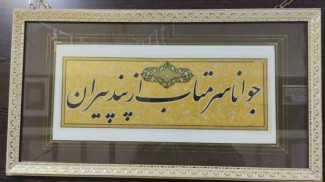 جوانا سر متاب از پند پیران